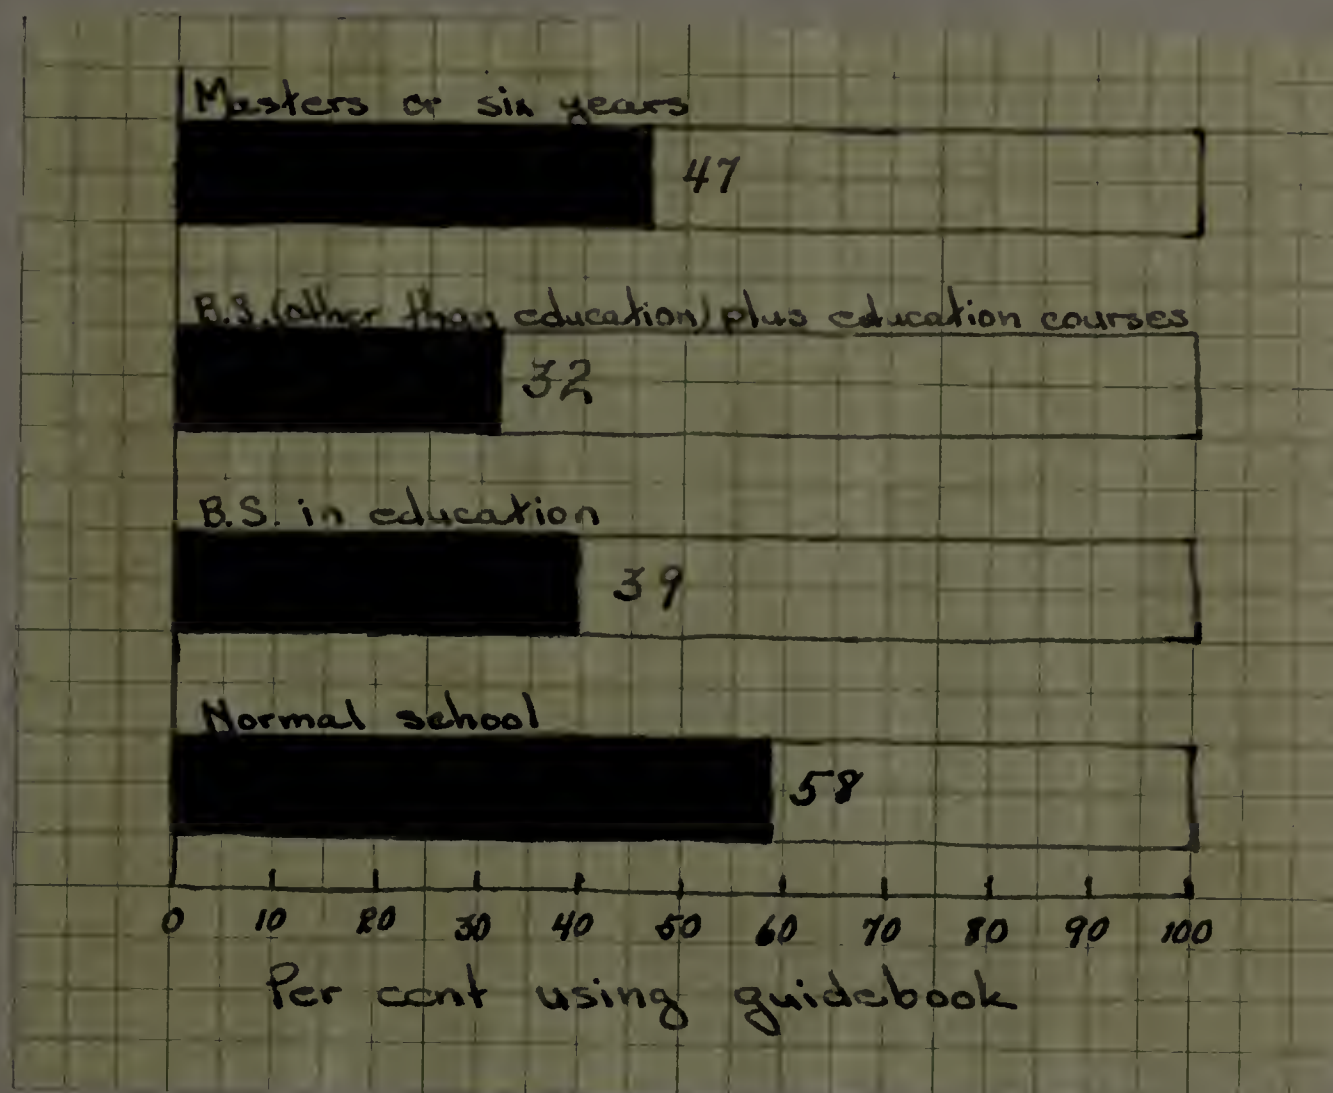 Masters or six years
47
B.S. (other than education) plus education courses
32
B.S. in education
39
Normal school
58
0 10 20 30 40 50 60 70 80 90 100
Per cent using guidebook